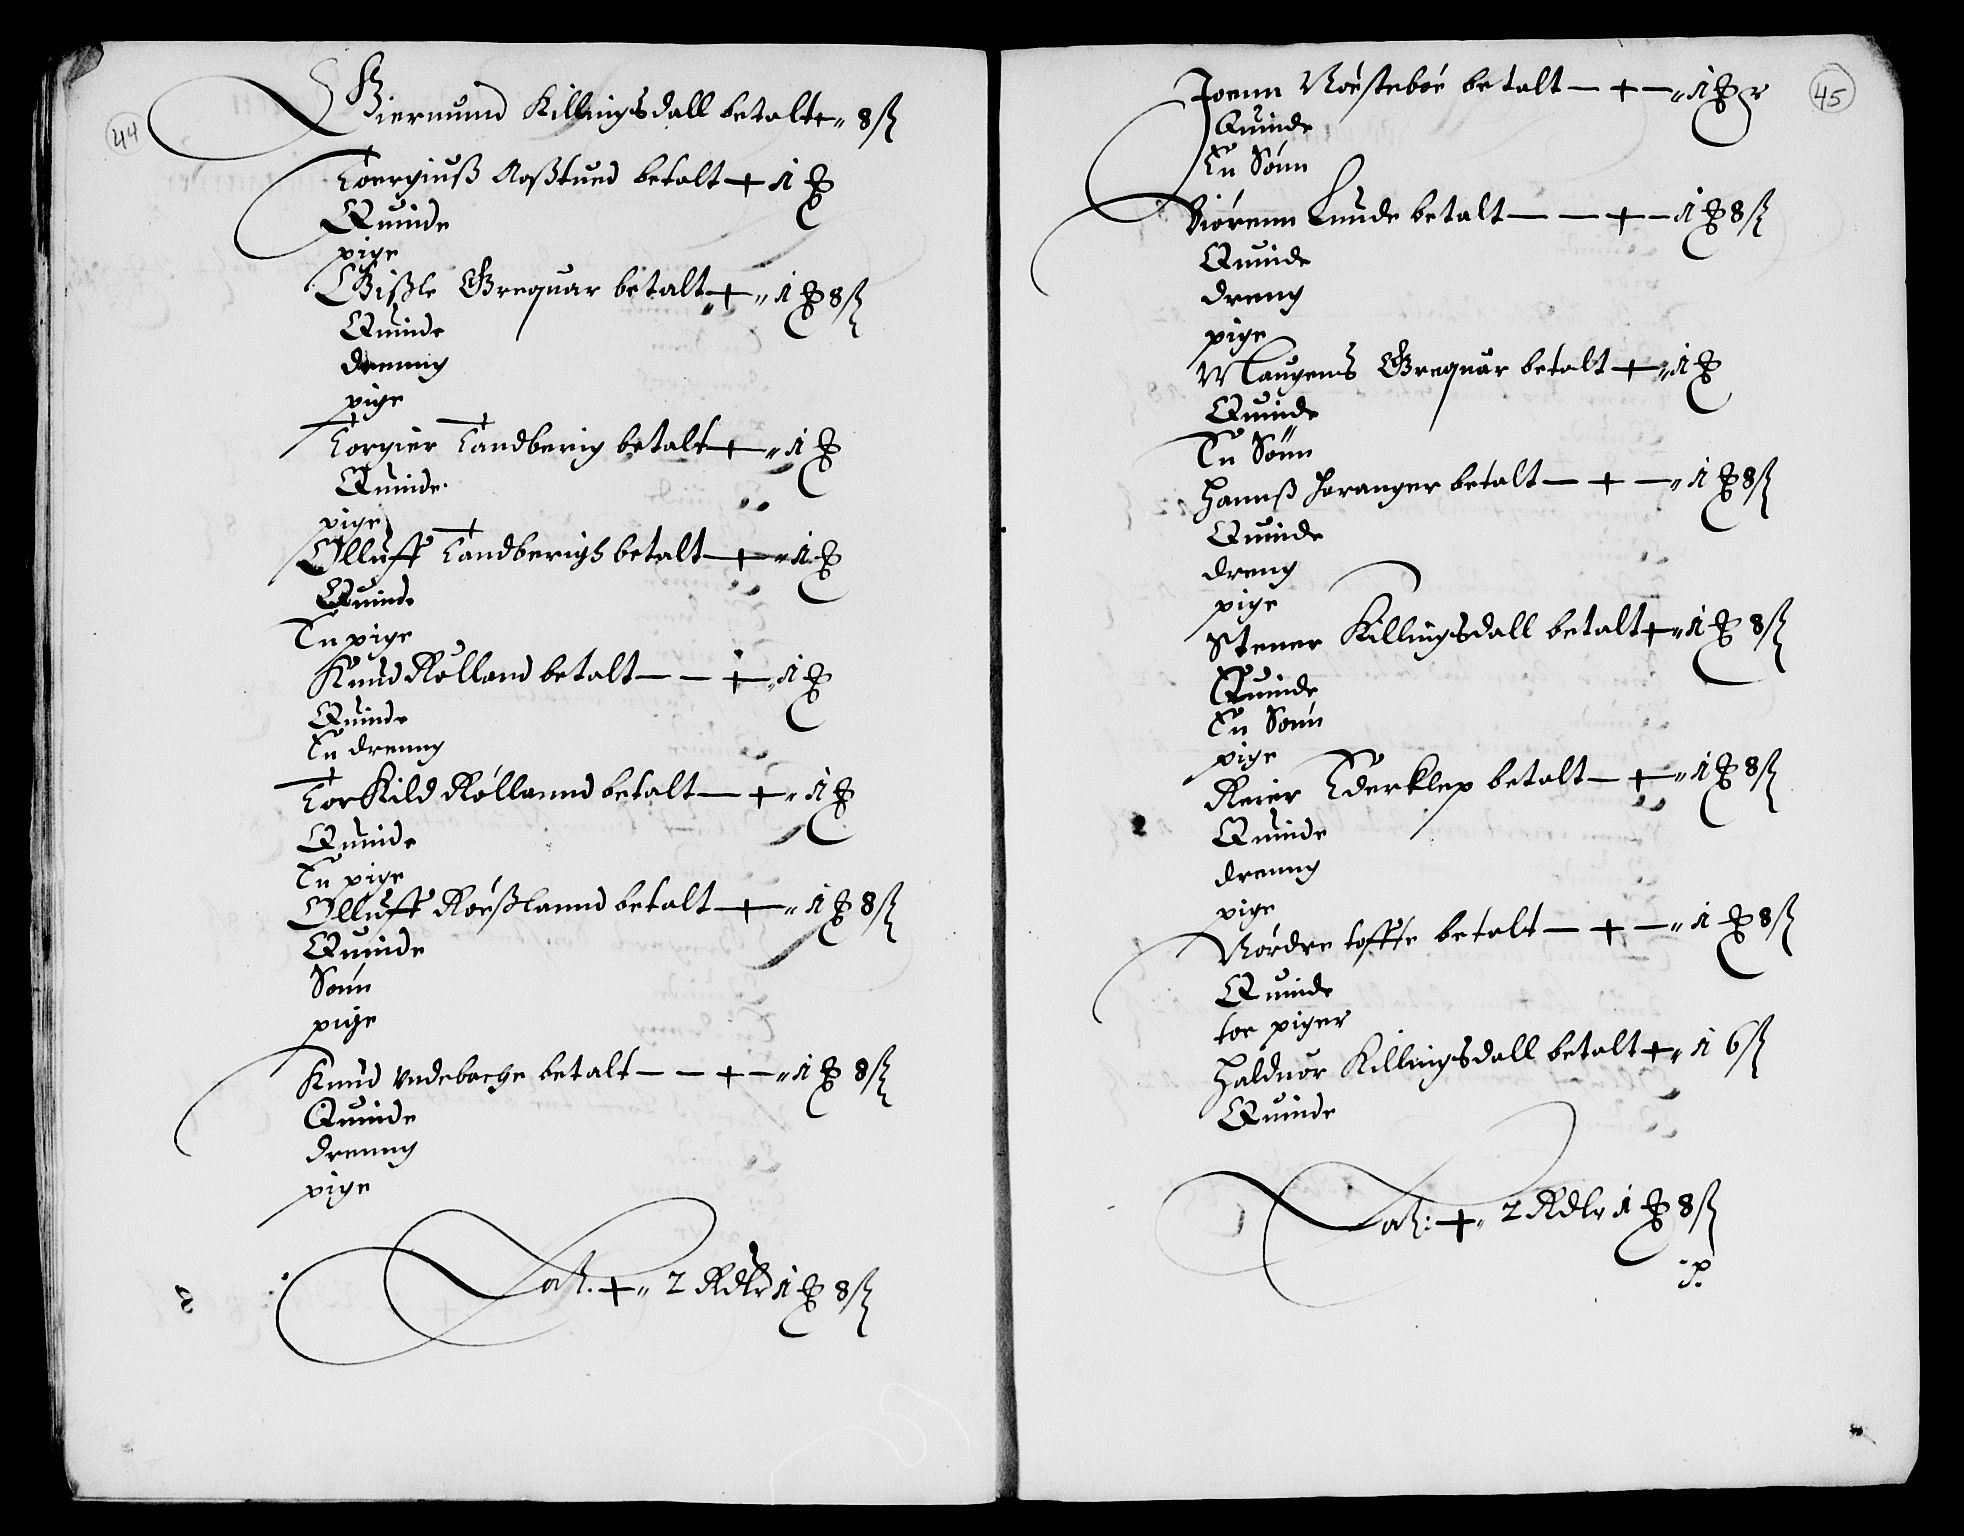 44
Giermund Killingsdall betalt + 8 ß
Toergiuß Aaßtued betalt + 1 ꝣ
Quinde
pige
Gißle Grequar betalt + 1 ꝣ 8 ß
Quinde
drenng
pige
Torgier Tandberig betalt + 1 ꝣ
Quinde
pige
Olluff Tandberigh betalt + 1 ꝣ
Quinde
En pige
Knud Rølland betalt — — + 1 ꝣ
Quinde
En drenng
Torkild Røllannd betalt — + 1 ꝣ
Quinde
En pige
Olluff Roeßlannd betalt — + 1 ꝣ 8 ß
Quinde
Sønn
pige
Knud Vndebache betalt — — + — 1 ꝣ 8 ß
Quinde
drenng
pige
Lat. + 2 Rdlr 1 ꝣ 8 ß
45
Joenn Nøstebøe betalt — + — 1 ꝣ
Quinde
En Sønn
Siørenn Lunde betalt — — + — 1 ꝣ 8 ß
Quinde
dreng
pige
Maugens Grequar betalt + 1 ꝣ
Quinde
En Sønn
Hannß Haranger betalt — + — 1 ꝣ 8 ß
Quinde
dreng
pige
Stener Killingsdall betalt + 1 ꝣ 8 ß
Quinde
En Sønn
pige
Reier Ederklep betalt — + 1 ꝣ 8 ß
Quinde
drenng
pige
Nørdre toffte betalt — + — 1 ꝣ 8 ß
Quinde
toe piger
Halduor Killingsdall betalt + 16 ß
Quinde
Lat: + 2 Rdlr 1 ꝣ 8 ß